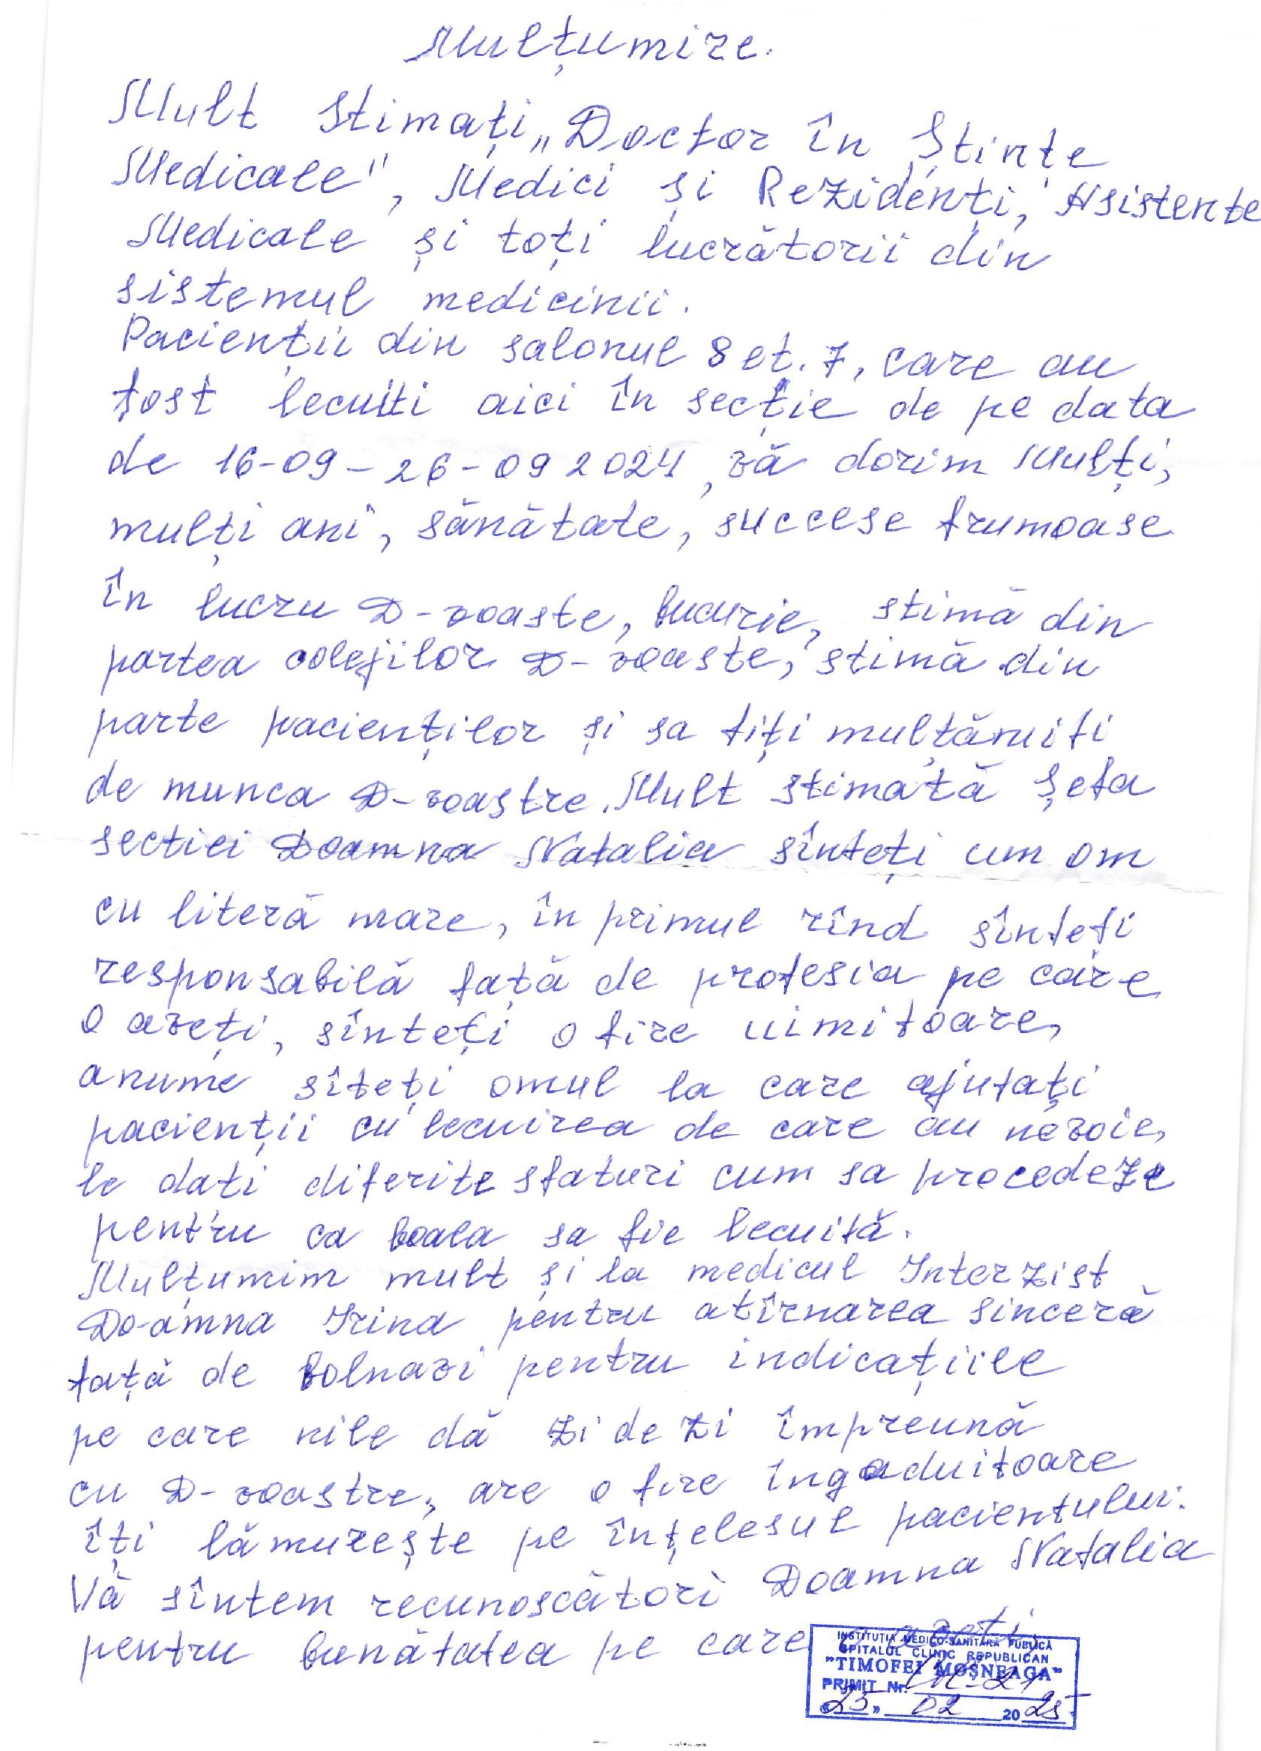 Mulțumire.
Mult stimați „Doctor în Ștințe
Medicale", Medici și Rezidenți, Asistente
Medicale și toți lucrătorii din
sistemul medicinii.
Pacienții din salonul 8 et. 7, care au
fost lecuiti aici în secție de pe data
de 16-09-26-09 2024, vă dorim Mulți,
mulți ani, sănătate, succese frumoase
în lucru D-voaste, bucurie, stimă din
partea colejilor D-voaste, stimă din
parte pacienților și sa fiți mulțămiti
de munca D-voastre. Mult stimată Șefa
sectiei Doamna Natalia sînteți um om
cu literă mare, în primul rînd sînteți
responsabilă față de profesia pe care
o aveți, sînteți o fire uimitoare,
anume sîteți omul la care ajutați
pacienții cu lecuirea de care au nevoie,
le dati diferite sfaturi cum sa procedeze
pentru ca boala sa fie lecuită.
Mulțumim mult și la medicul Interzist
Doamna Irina pentru atîrnarea sinceră
față de bolnavi pentru indicațiile
pe care nile dă zi de zi împreună
cu D-voastre, are o fire îngaduitoare
îți lămurește pe înțelesul pacientului.
Vă sîntem recunoscători Doamna Natalia
pentru bunătatea pe care aveti
INSTITUȚIA MEDICO-SANITARĂ PUBLICĂ
SPITALUL CLINIC REPUBLICAN
"TIMOFEI MOȘNEAGA"
PRIMIT Nr.
«25» 02 2025